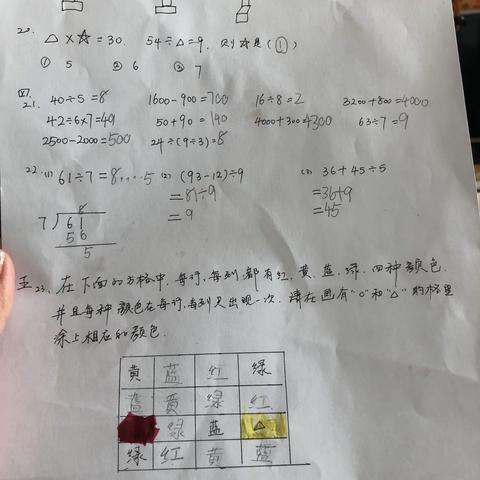 20. △×☆=30. 54÷△=9. 则☆是(①)
① 5 ② 6 ③ 7
四.
21. 40÷5=8 1600-900=700 16÷8=2 3200+800=4000
42÷6×7=49 50+90=140 4000+300=4300 63÷7=9
2500-2000=500 24÷(9÷3)=8
22. (1) 61÷7=8....5 (2) (93-12)÷9 (3) 36+45÷5
=81÷9 =36+9
=9 =45
8
7 61
56
5
五.23. 在下面的方格中,每行,每列都有红.黄.蓝.绿.四种颜色.
并且每种颜色在每行,每列只出现一次.请在画有"○"和"△"的格里
涂上相应的颜色.
黄 蓝 红 绿
蓝 黄 绿 红
绿 蓝 △
绿 红 黄 蓝